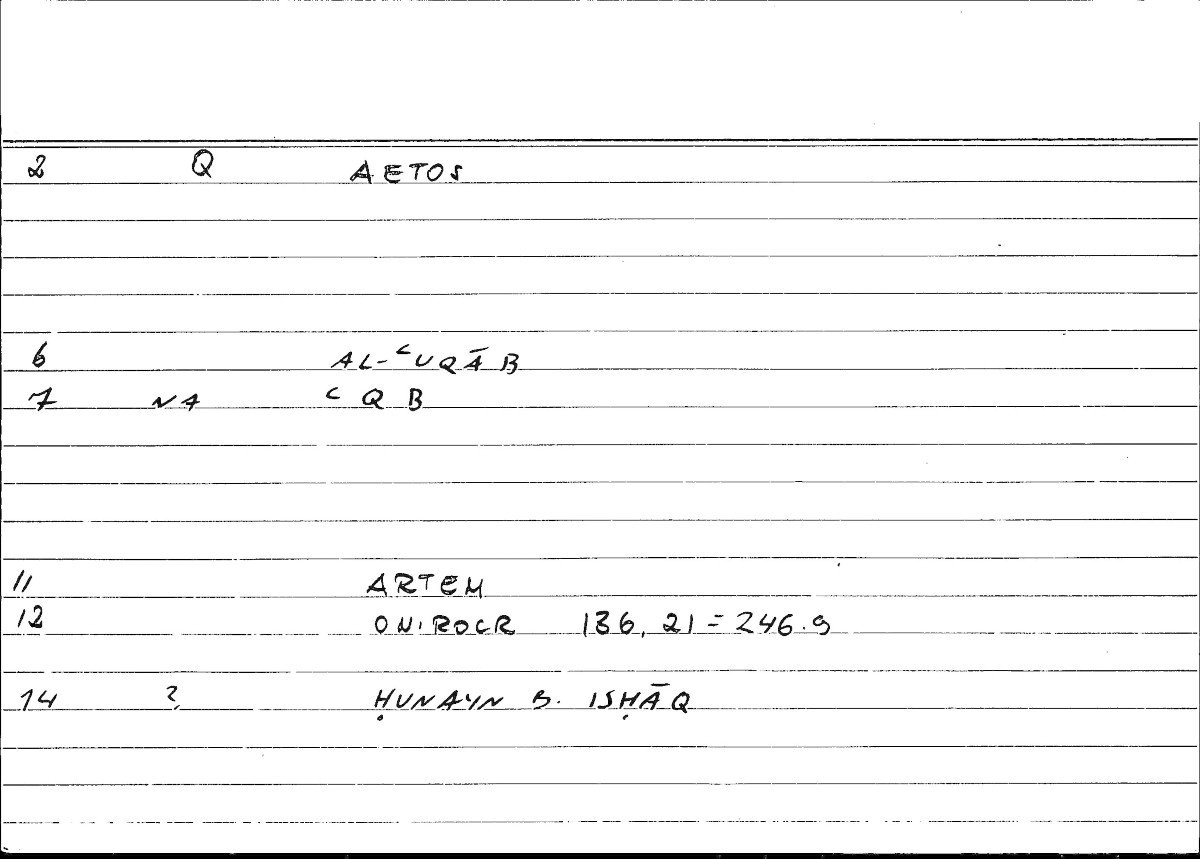 2 Q AETOS
6 AL-ʿUQĀB
7 NA ʿQB
11 ARTEM
12 ONIROCR 136, 21 = 246.9
14 ? ḤUNAYN B. ISḤĀQ